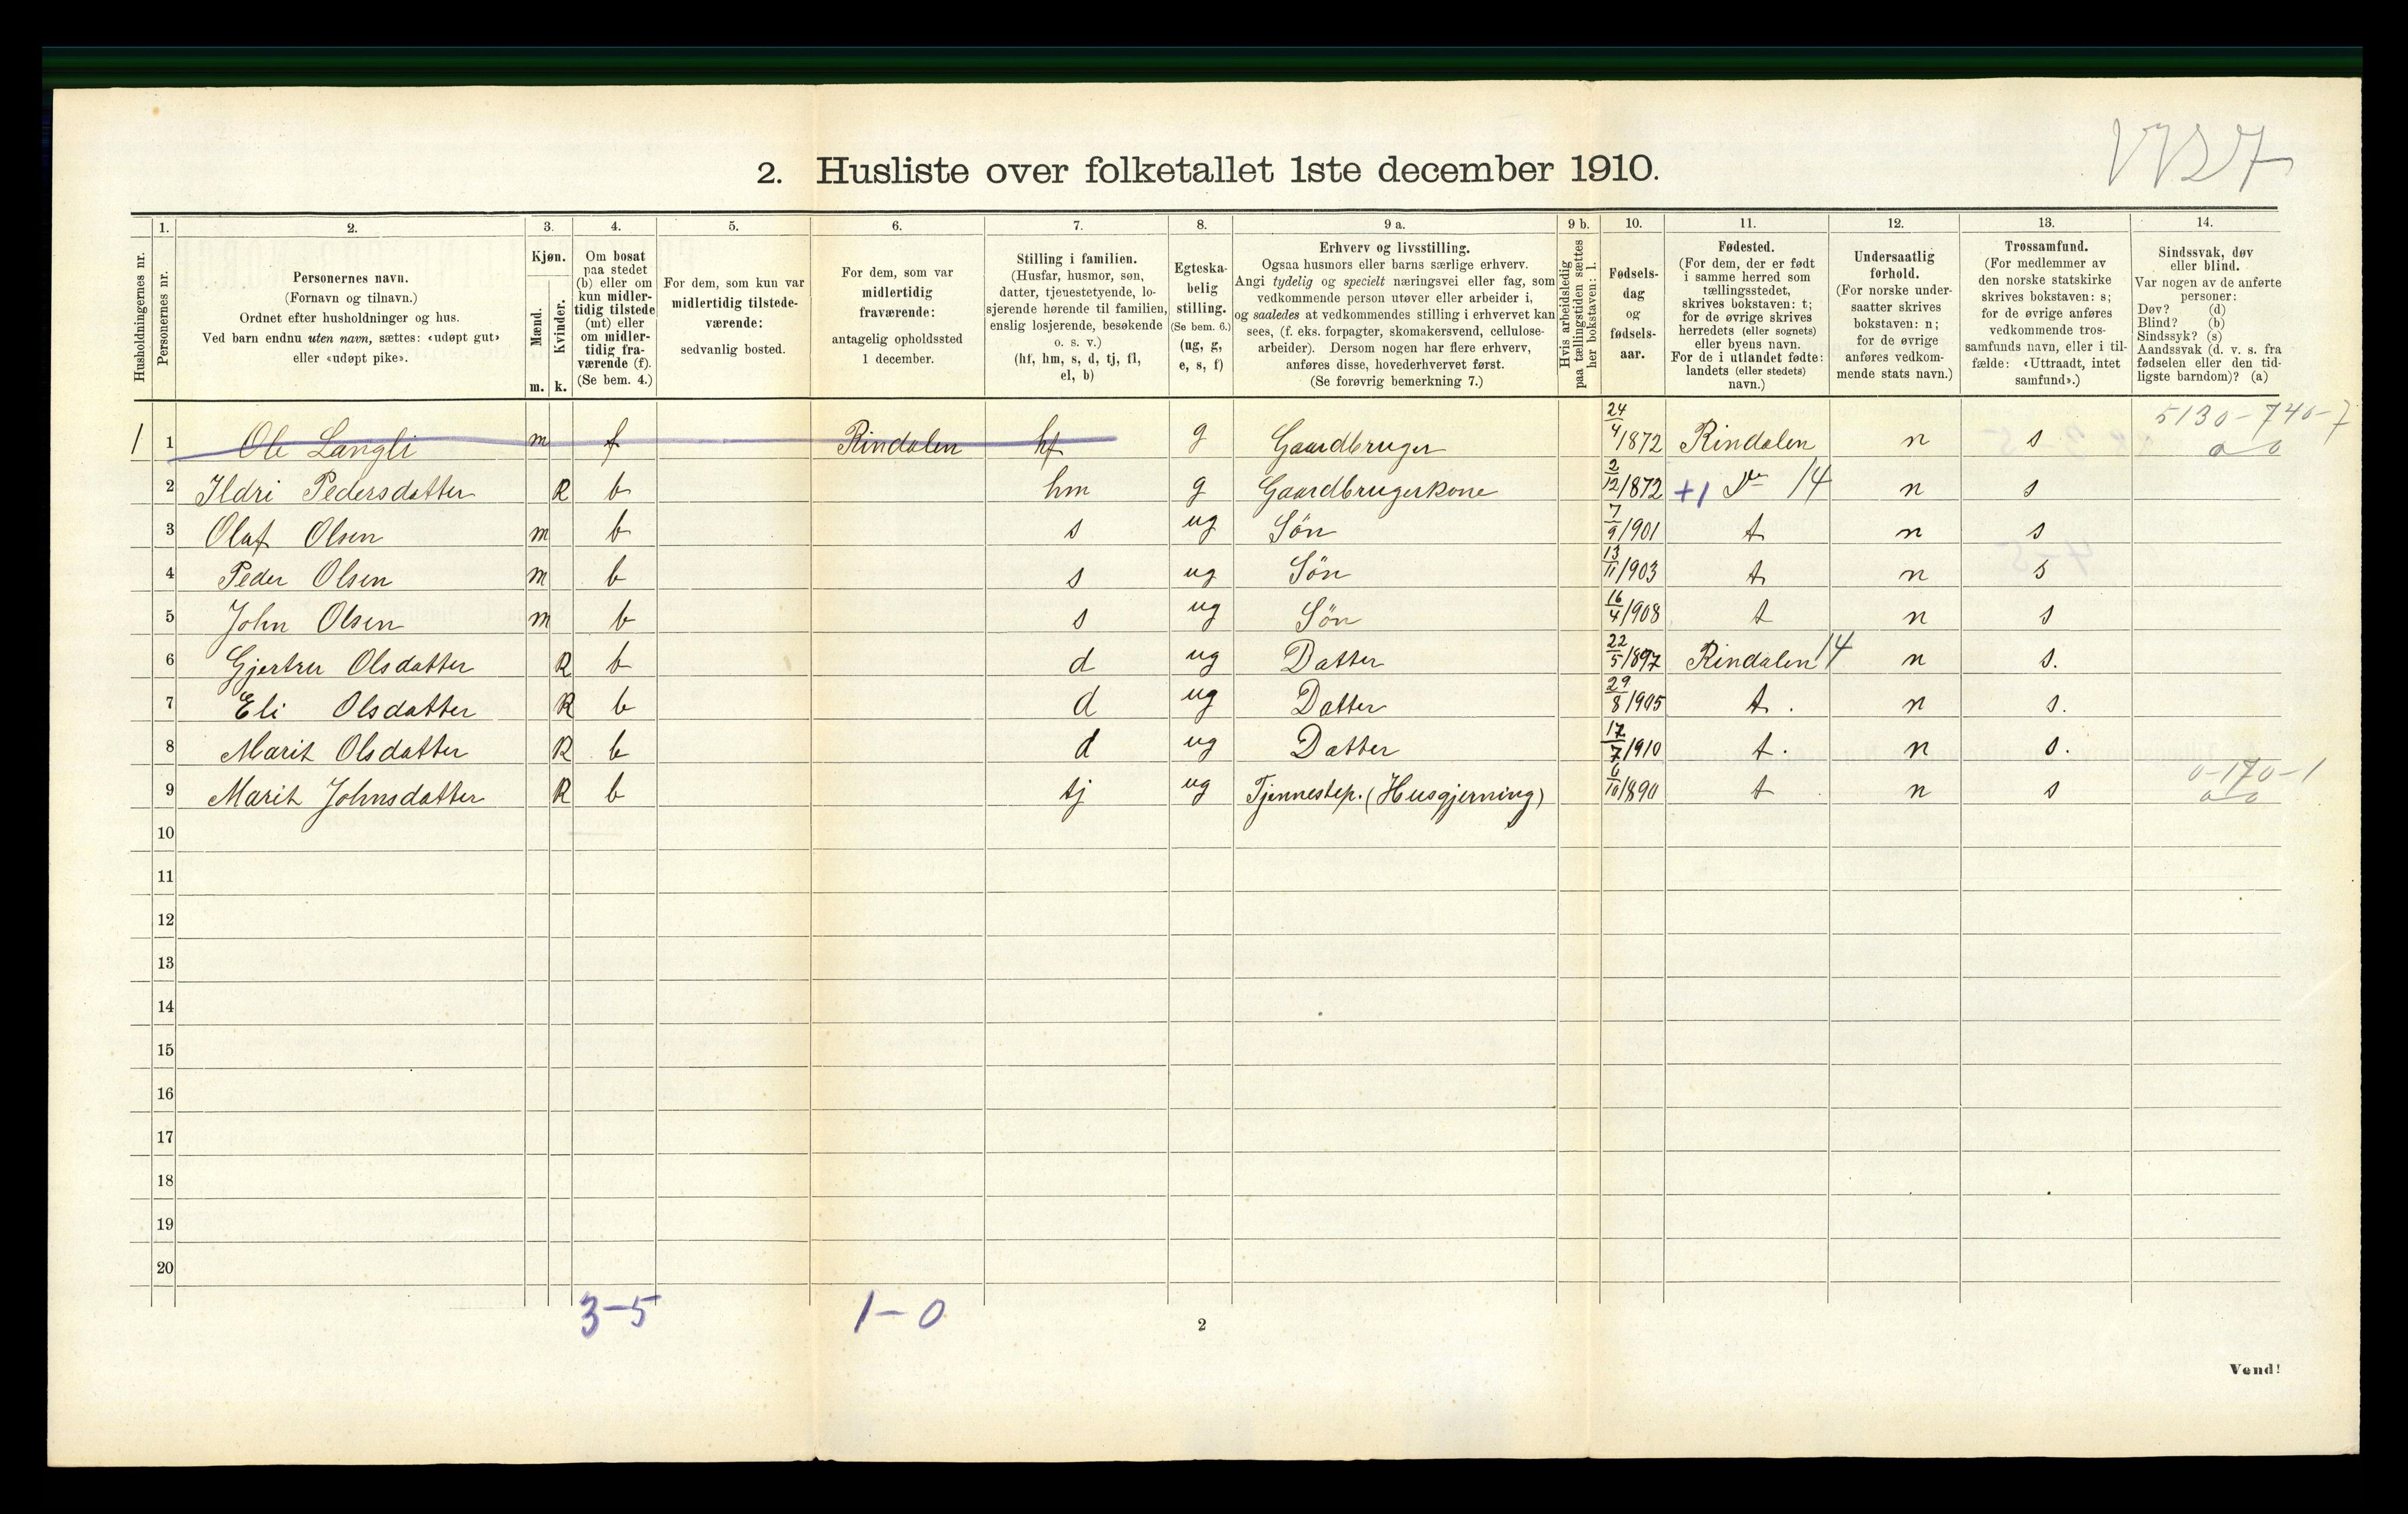 VV27
2. Husliste over folketallet 1ste december 1910.
Husholdningernes nr.
1. Personernes nr.
2. Personernes navn.
(Fornavn og tilnavn.)
Ordnet efter husholdninger og hus.
Ved barn endnu uten navn, sættes: «udøpt gut»
eller «udøpt pike».
3. Kjøn.
Mænd. m.
Kvinder. k.
4. Om bosat
paa stedet
(b) eller om
kun midler-
tidig tilstede
(mt) eller
om midler-
tidig fra-
værende (f).
(Se bem. 4.)
5. For dem, som kun var
midlertidig tilstede-
værende:
sedvanlig bosted.
6. For dem, som var
midlertidig
fraværende:
antagelig opholdssted
1 december.
7. Stilling i familien.
(Husfar, husmor, søn,
datter, tjenestetyende, lo-
sjerende hørende til familien,
enslig losjerende, besøkende
o. s. v.)
(hf, hm, s, d, tj, fl,
el, b)
8. Egteska-
belig
stilling.
(Se bem. 6.)
(ug, g,
e, s, f)
9 a. Erhverv og livsstilling.
Ogsaa husmors eller barns særlige erhverv.
Angi tydelig og specielt næringsvei eller fag, som
vedkommende person utøver eller arbeider i,
og saaledes at vedkommendes stilling i erhvervet kan
sees, (f. eks. forpagter, skomakersvend, cellulose-
arbeider). Dersom nogen har flere erhverv,
anføres disse, hovederhvervet først.
(Se forøvrig bemerkning 7.)
9 b. Hvis arbeidsledig
paa tællingstiden sættes
her bokstaven: l.
10. Fødsels-
dag
og
fødsels-
aar.
11. Fødested.
(For dem, der er født
i samme herred som
tællingsstedet,
skrives bokstaven: t;
for de øvrige skrives
herredets (eller sognets)
eller byens navn.
For de i utlandet fødte:
landets (eller stedets)
navn.)
12. Undersaatlig
forhold.
(For norske under-
saatter skrives
bokstaven: n;
for de øvrige
anføres vedkom-
mende stats navn.)
13. Trossamfund.
(For medlemmer av
den norske statskirke
skrives bokstaven: s;
for de øvrige anføres
vedkommende tros-
samfunds navn, eller i til-
fælde: «Uttraadt, intet
samfund».)
14. Sindssvak, døv
eller blind.
Var nogen av de anførte
personer:
Døv? (d)
Blind? (b)
Sindssyk? (s)
Aandssvak (d. v. s. fra
fødselen eller den tid-
ligste barndom)? (a)
1 1 Ole Langli m f Rindalen hf g Gaardbruger 24/4 1872 Rindalen n s 5130-740-7 0 0
2 Ildri Pedersdatter K b hm g Gaardbrugerkone 2/12 1872 +1 do 14 n s
3 Olaf Olsen m b s ug Søn 7/9 1901 t n s
4 Peder Olsen m b s ug Søn 13/11 1903 t n s
5 John Olsen m b s ug Søn 16/4 1908 t n s
6 Gjertru Olsdatter K b d ug Datter 22/5 1897 Rindalen 14 n s.
7 Eli Olsdatter K b d ug Datter 29/8 1905 t. n s.
8 Marit Olsdatter K b d ug Datter 17/7 1910 t. n s.
9 Marit Johnsdatter K b tj ug Tjennestep. (Husgjerning) 6/10 1890 t n s 0-170-1 0 0
10
11
12
13
14
15
16
17
18
19
20
3-5 1-0
2
Vend!